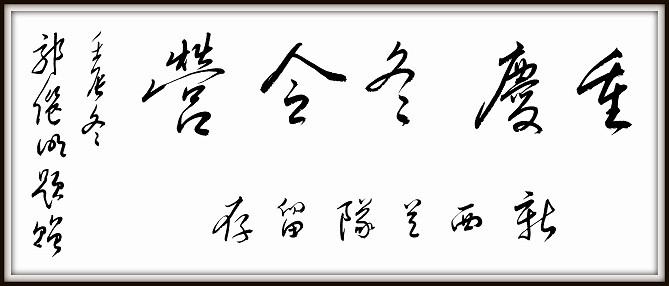 重慶冬令營
新西兰隊留存
壬辰冬
郭明題贈